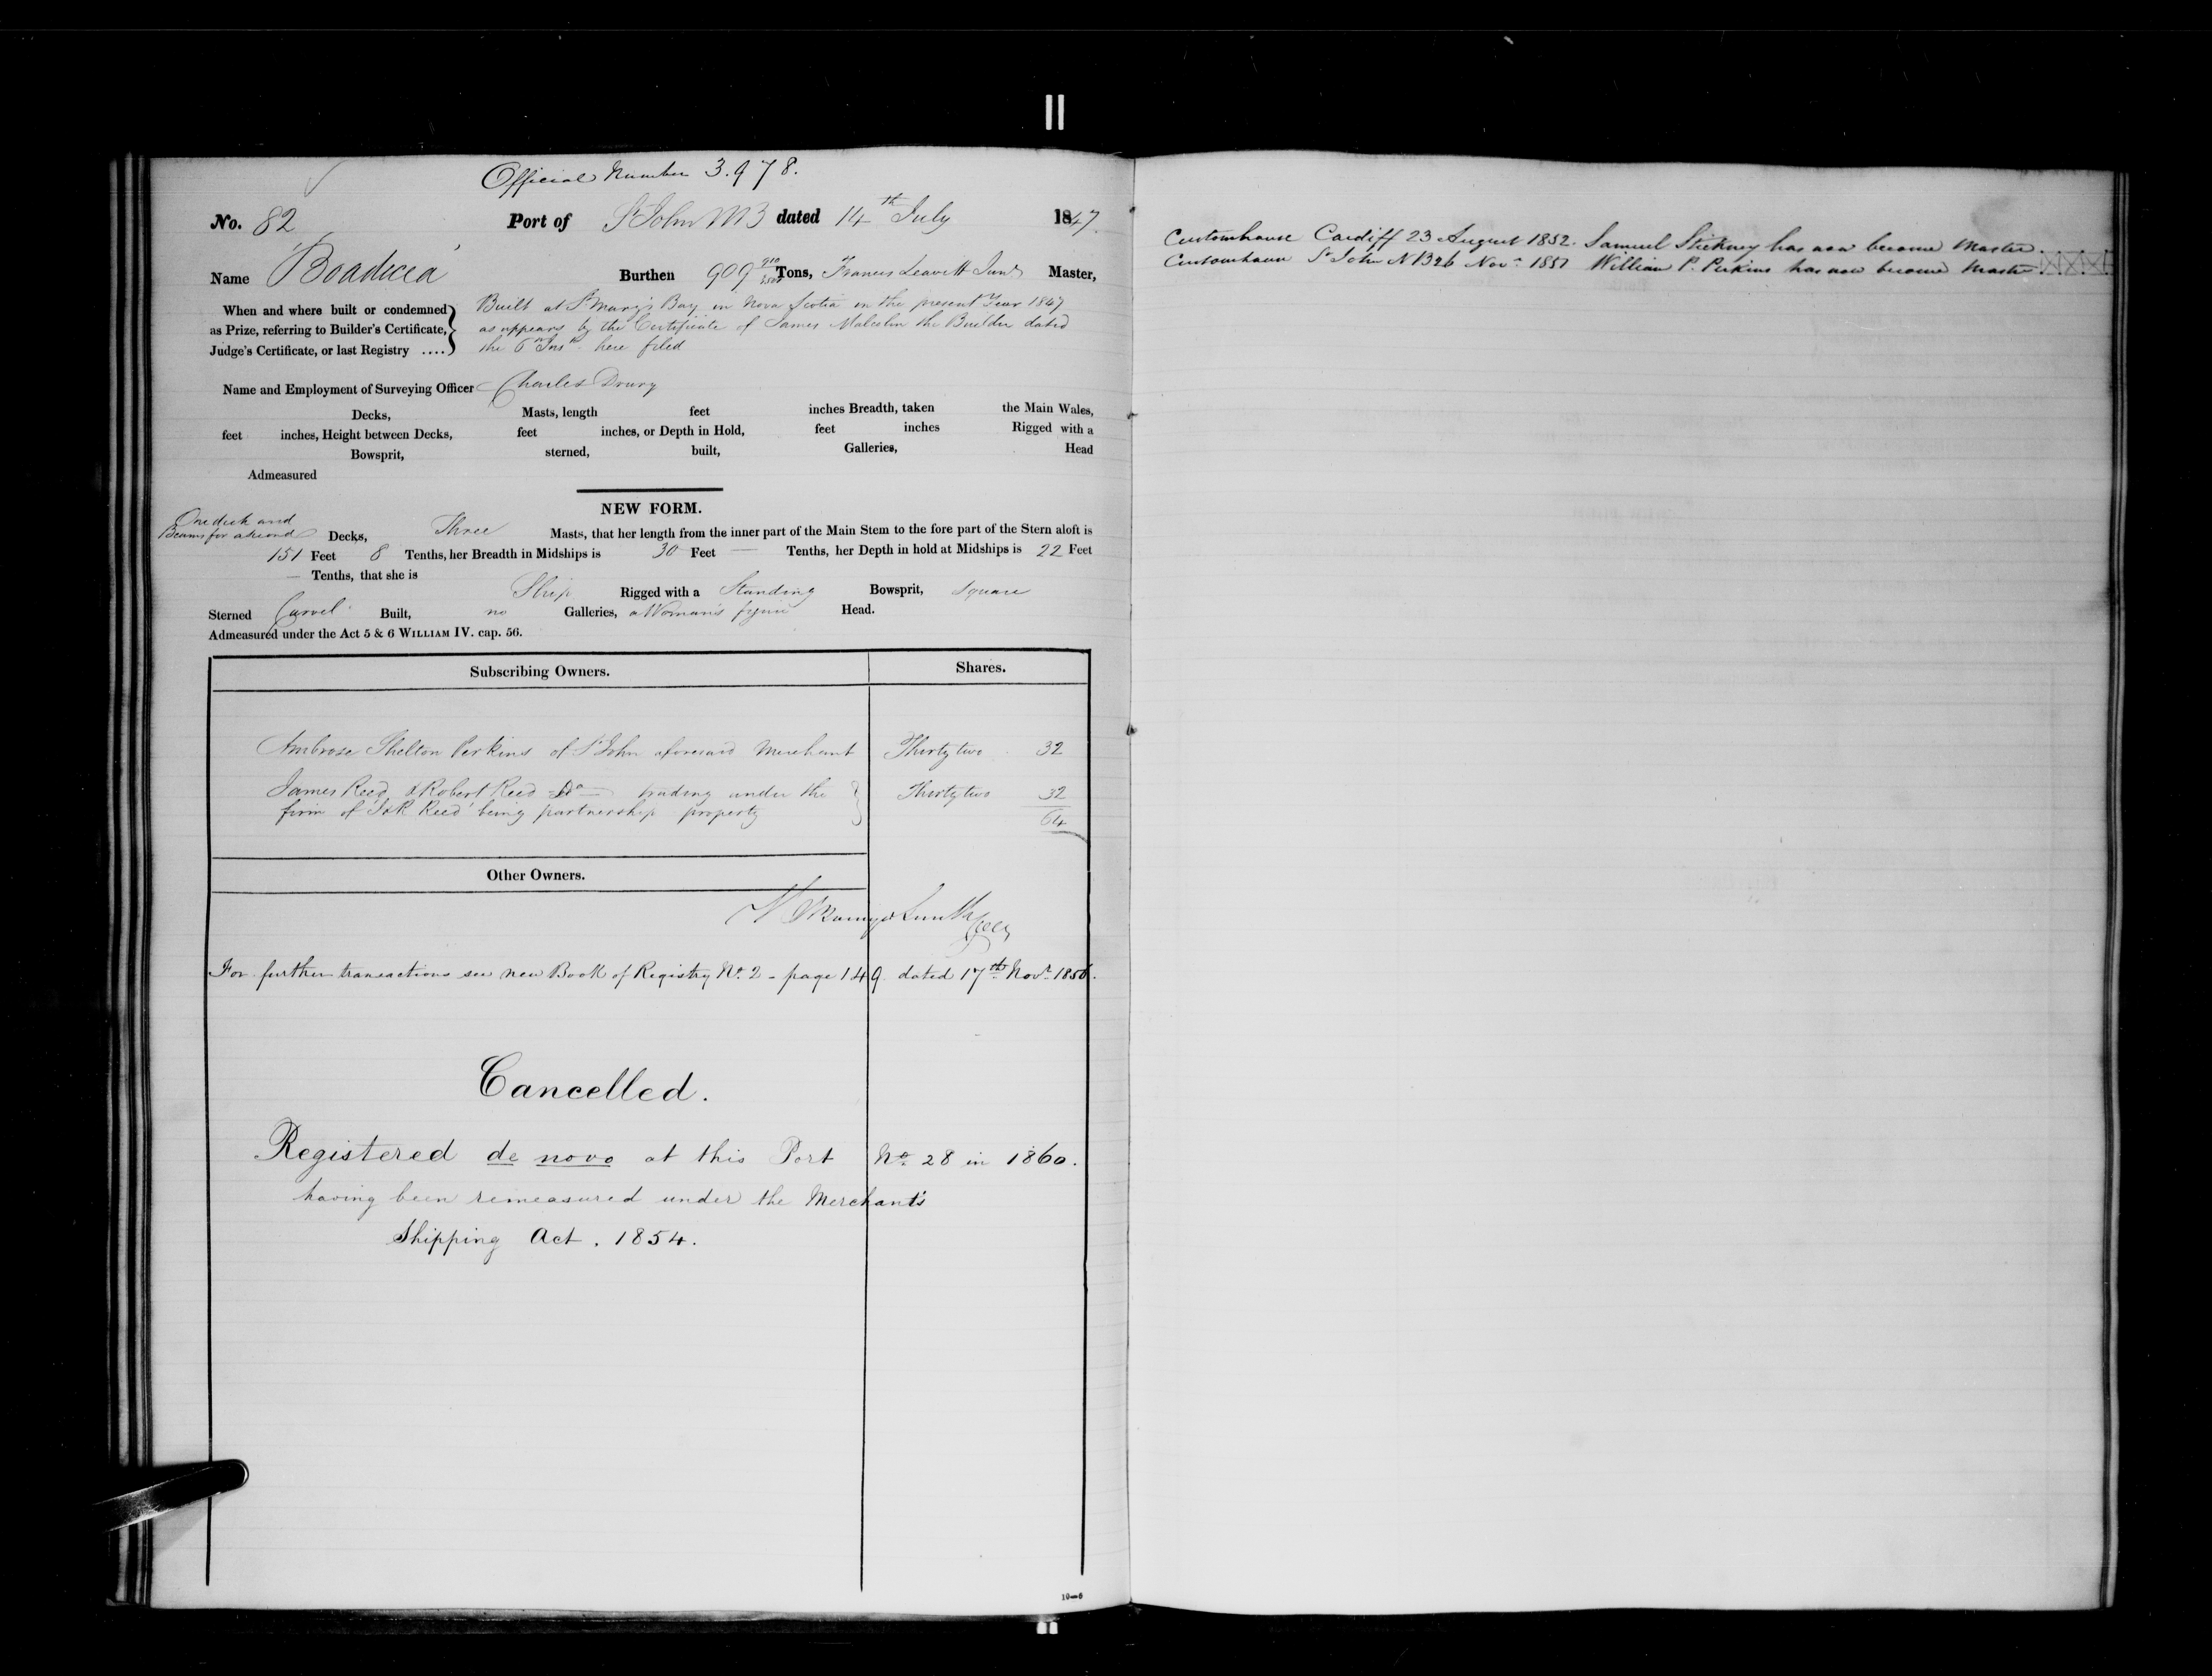 Official Number 3.978.
No. 82 Port of St John NB dated 14th July 1847
Name 'Boadicea' Burthen 909 910/3500 Tons, Francis Leavitt Junr Master,
When and where built or condemned as Prize, referring to Builder's Certificate, Judge's Certificate, or last Registry ....
Built at St Mary's Bay in Nova Scotia in the present Year 1847
as appears by the Certificate of James Malcolm the Builder dated
the 6th Inst here filed
Name and Employment of Surveying Officer Charles Drury
Decks, Masts, length feet inches Breadth, taken the Main Wales,
feet inches, Height between Decks, feet inches, or Depth in Hold, feet inches Rigged with a
Bowsprit, sterned, built, Galleries, Head
Admeasured
NEW FORM.
One deck and
Beams for a second Decks, Three Masts, that her length from the inner part of the Main Stem to the fore part of the Stern aloft is
151 Feet 8 Tenths, her Breadth in Midships is 30 Feet — Tenths, her Depth in hold at Midships is 22 Feet
— Tenths, that she is Ship Rigged with a Standing Bowsprit, Square
Sterned Carvel Built, no Galleries, a Woman's figure Head.
Admeasured under the Act 5 & 6 WILLIAM IV. cap. 56.
Subscribing Owners. Shares.
Ambrose Shelton Perkins of St John aforesaid Merchant Thirty two 32
James Reed & Robert Reed Do — trading under the Thirty two 32
firm of 'J & R Reed' being partnership property 64
Other Owners.
Smith
For further transactions see new Book of Registry No. 2 - page 149 dated 17th Novr 1856.
Cancelled.
Registered de novo at this Port No. 28 in 1860.
having been remeasured under the Merchant's
Shipping Act. 1854.
10—6
Customhouse Cardiff 23 August 1852. Samuel Stickney has now become Master.
Customhouse St John NB 26 Novr 1851 William P. Perkins has now become Master.